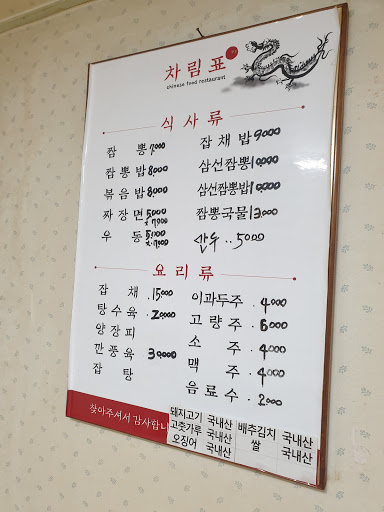 차림표
chinese food restaurant
식사류
짬뽕 7000
짬뽕밥 8000
볶음밥 8000
짜장면 5000
우동
잡채밥 9000
삼선짬뽕 10,000
삼선짬뽕밥 10,000
짬뽕국물 13,000
만두 .. 5000
요리류
잡채 . 15000
탕수육 . 20000
양장피
깐풍육 30,000
잡탕
이과두주 . 4000
고량주 . 6000
소주 . 4000
맥주 . 4000
음료수 . 2000
찾아주셔서 감사합니
돼지고기 국내산
고춧가루 국내산
오징어 국내산
배추김치 국내산
쌀 국내산